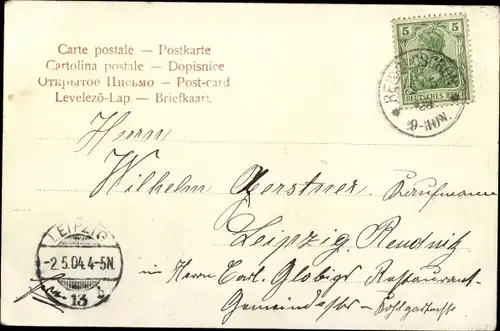 Carte postale — Postkarte
Cartolina postale — Dopisnice
Открытое Письмо — Post-card
Levelező-Lap — Briefkaart.
5 5
DEUTSCHES REICH
9-10N.
Herrn
Wilhelm Gerstner, Kaufmann
Leipzig. Reudnitz
im Herrn Carl Globigs Restaurant
LEIPZIG
-2.5.04.4-5N.
13 b